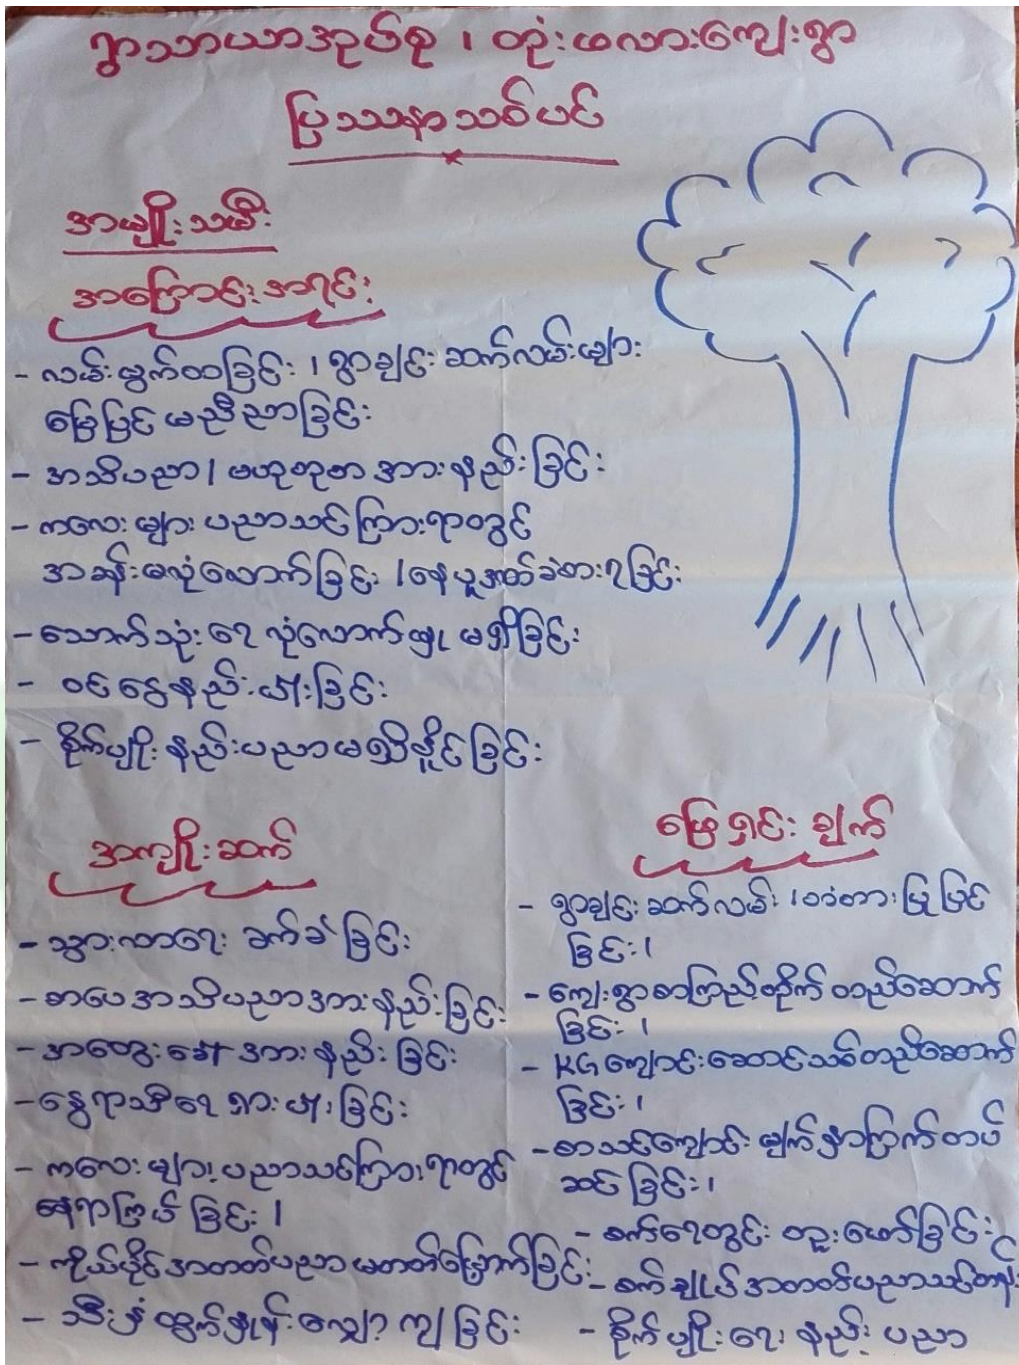 ရွာသာယာအုပ်စု ၊ တုံးဖလားကျေးရွာ
ပြဿနာသစ်ပင်
အမျိုးသမီး
အကြောင်းအရင်း
- လမ်းပွက်ထခြင်း ၊ ရွာချင်းဆက်လမ်းများ
မြေပြင် မညီညာခြင်း
- အသိပညာ ၊ ဗဟုသုတ အားနည်းခြင်း
- ကလေးများ ပညာသင်ကြားရာတွင်
အခန်းမလုံလောက်ခြင်း ၊ နေပူဒဏ်ခံစားရခြင်း
- သောက်သုံးရေ လုံလောက်မှု မရှိခြင်း
- ဝင်ငွေနည်းပါးခြင်း
- စိုက်ပျိုးနည်းပညာမရှိနိုင်ခြင်း
အကျိုးဆက်
- သွားလာရေး ခက်ခဲခြင်း
- စာပေအသိပညာအားနည်းခြင်း
- အတွေးခေါ်အားနည်းခြင်း
- နွေရာသီရေရှားပါးခြင်း
- ကလေးများပညာသင်ကြားရာတွင်
နေရာကြပ်ခြင်း ၊
- ကိုယ်ပိုင်အတတ်ပညာမတတ်မြောက်ခြင်း
- သီးနှံထွက်နှုန်းလျော့ကျခြင်း
ဖြေရှင်းချက်
- ရွာချင်းဆက်လမ်း ၊ တံတားပြုပြင်
ခြင်း ၊
- ကျေးရွာစာကြည့်တိုက် တည်ဆောက်
ခြင်း ၊
- KG ကျောင်းဆောင်သစ်တည်ဆောက်
ခြင်း ၊
- စာသင်ကျောင်း မျက်နှာကြက်တပ်
ဆင်ခြင်း ၊
- စက်ရေတွင်း တူးဖော်ခြင်း
- စက်ချုပ်အတတ်ပညာသင်တန်း
- စိုက်ပျိုးရေး နည်းပညာ